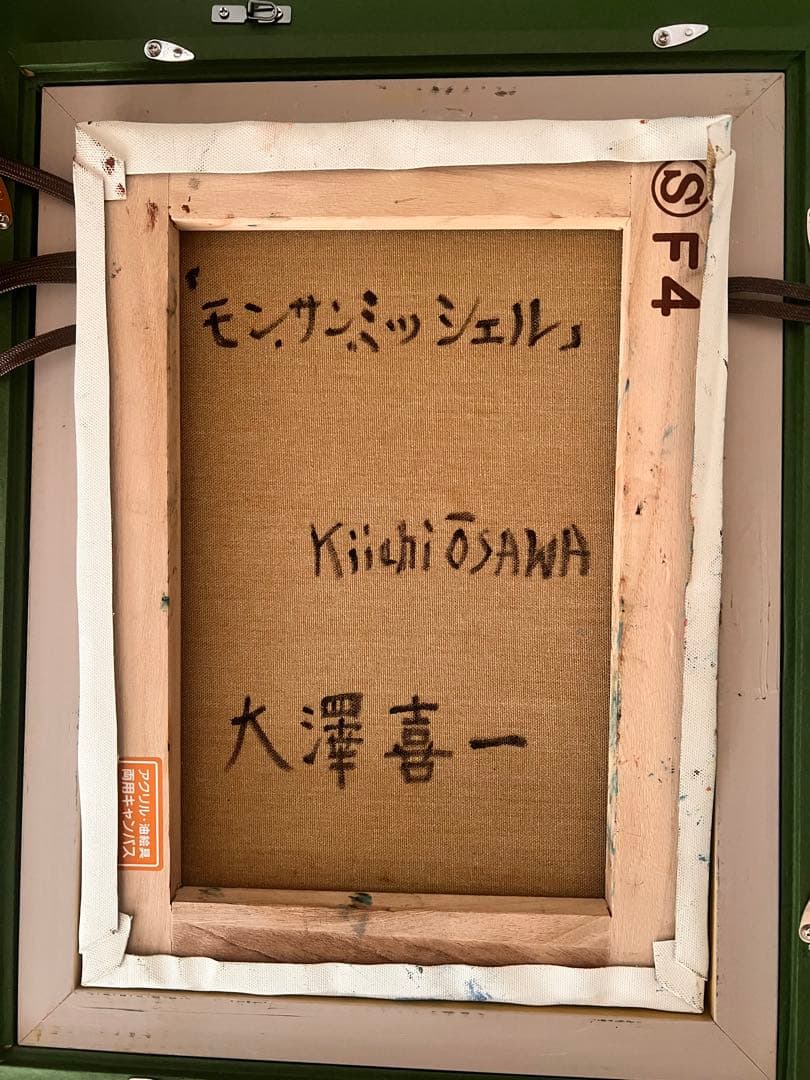 Ⓢ F4
「モン.サン.ミッシェル」
Kiichi ŌSAWA
大澤喜一
アクリル・油絵具
両用キャンバス